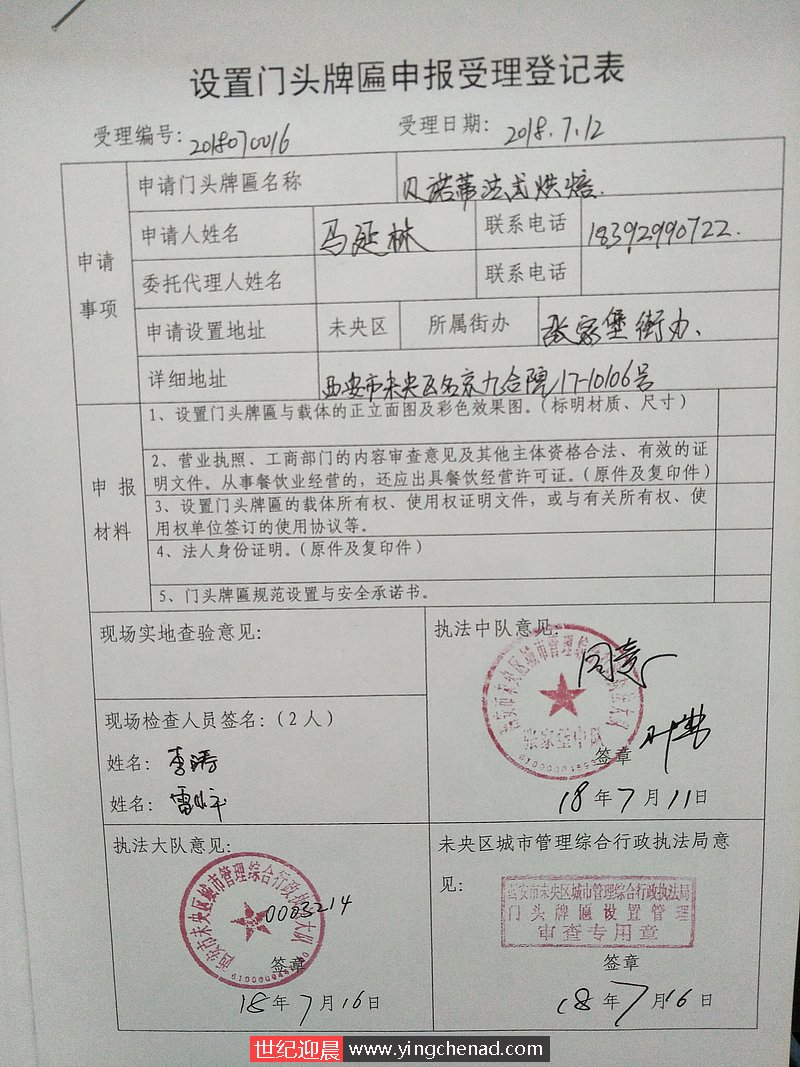 设置门头牌匾申报受理登记表
受理编号：2018070016 受理日期：2018.7.12
申请事项
申请门头牌匾名称 贝诺蒂法式烘焙.
申请人姓名 马延林 联系电话 18392990722.
委托代理人姓名 联系电话
申请设置地址 未央区 所属街办 张家堡街办、
详细地址 西安市未央区名京九合院17-10106号
申报材料
1、设置门头牌匾与载体的正立面图及彩色效果图。（标明材质、尺寸）
2、营业执照、工商部门的内容审查意见及其他主体资格合法、有效的证
明文件。从事餐饮业经营的，还应出具餐饮经营许可证。（原件及复印件）
3、设置门头牌匾的载体所有权、使用权证明文件，或与有关所有权、使
用权单位签订的使用协议等。
4、法人身份证明。（原件及复印件）
5、门头牌匾规范设置与安全承诺书。
现场实地查验意见：
现场检查人员签名：（2人）
姓名：李涛
姓名：雷
执法中队意见：
同意
张家堡中队
签章
18年7月11日
执法大队意见：
西安市未央区城市管理综合行政执法大队
0003214
签章
18年7月16日
未央区城市管理综合行政执法局意
见：
西安市未央区城市管理综合行政执法局
门头牌匾设置管理
审查专用章
签章
18年7月16日
世纪迎晨 www.yingchenad.com